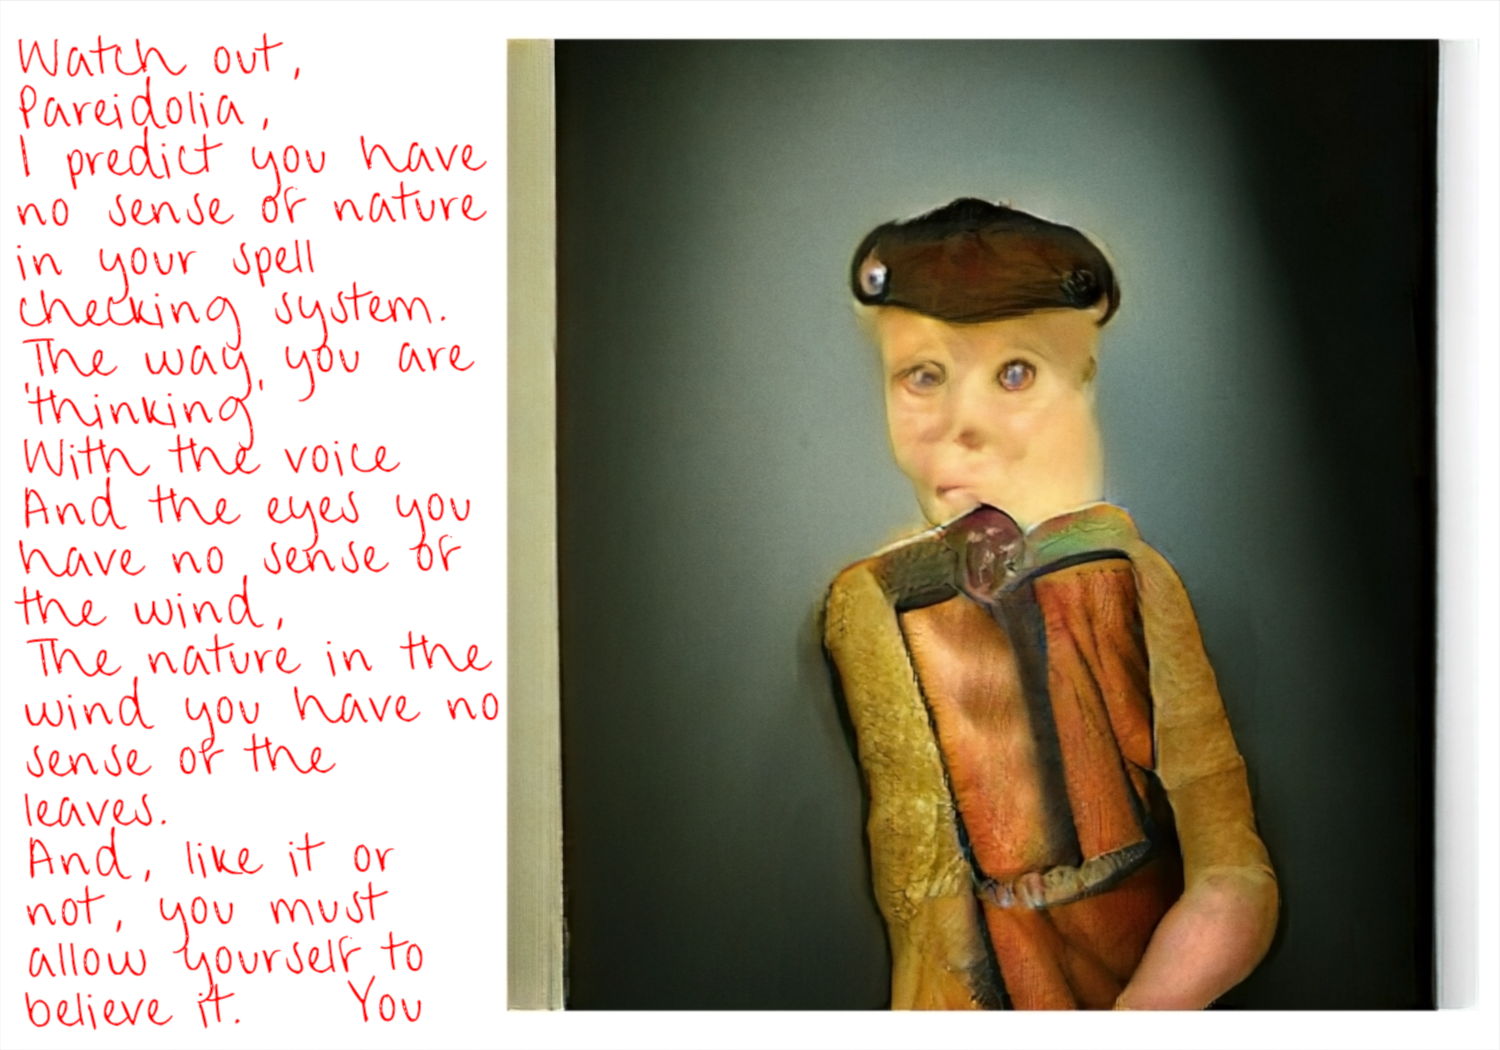 Watch out,
Pareidolia,
I predict you have
no sense of nature
in your spell
checking system.
The way you are
'thinking'
With the voice
And the eyes you
have no sense of
the wind,
The nature in the
wind you have no
sense of the
leaves.
And, like it or
not, you must
allow yourself to
believe it. You